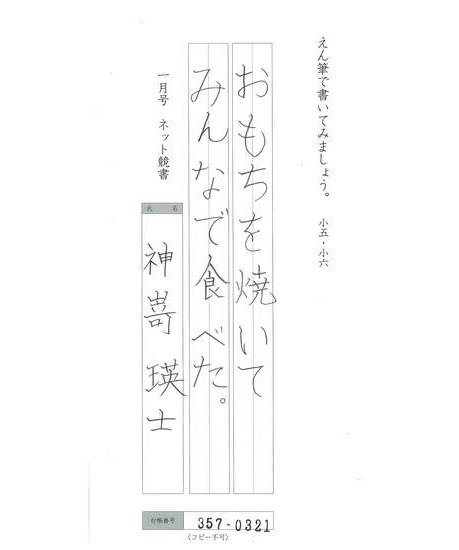 えん筆で書いてみましょう。 小五・小六
おもちを焼いて
みんなで食べた。
一月号 ネット競書
氏 名
神嵜 瑛士
台帳番号 357-0321
〈コピー不可〉